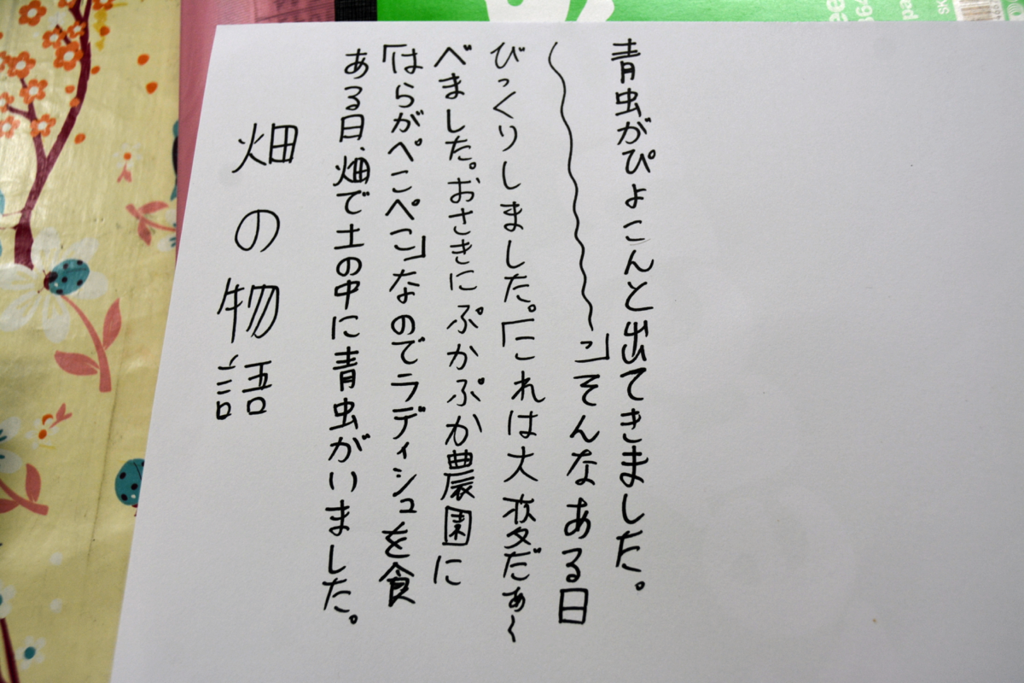 畑の物語
ある日、畑で土の中に青虫がいました。
「はらがぺこぺこ」なのでラディシュを食
べました。おさきにぷかぷか農園に
びっくりしました。「これは大変だぁ〜
〜っ」そんなある日
青虫がぴょこんと出てきました。